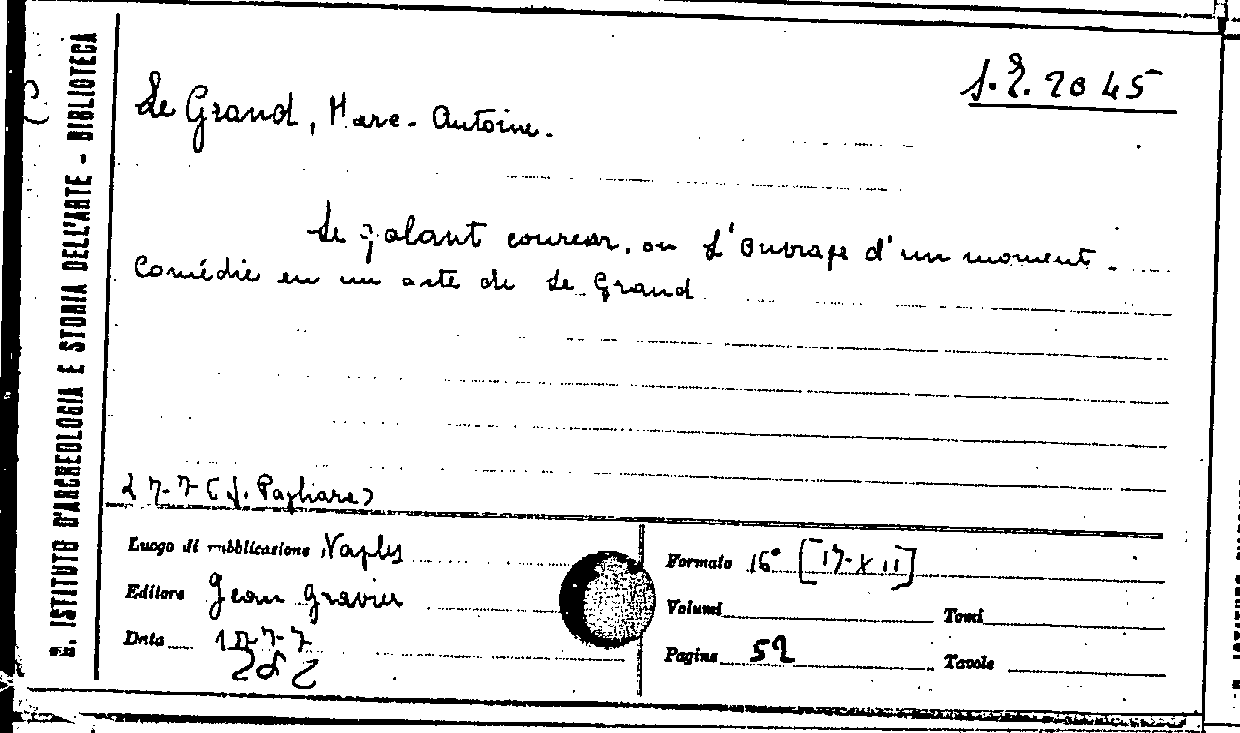 R. ISTITUTO D'ARCHEOLOGIA E STORIA DELL'ARTE - BIBLIOTECA
Le Grand, Marc-Antoine.
Le galant coureur, ou L'Ouvrage d'un moment.
Comédie en un acte de Le Grand
(J. Pagliare)
Luogo di pubblicazione Naples
Editore Jean Gravier
Data
Formato 16°
Volumi
Tomi
Pagine 52
Tavole